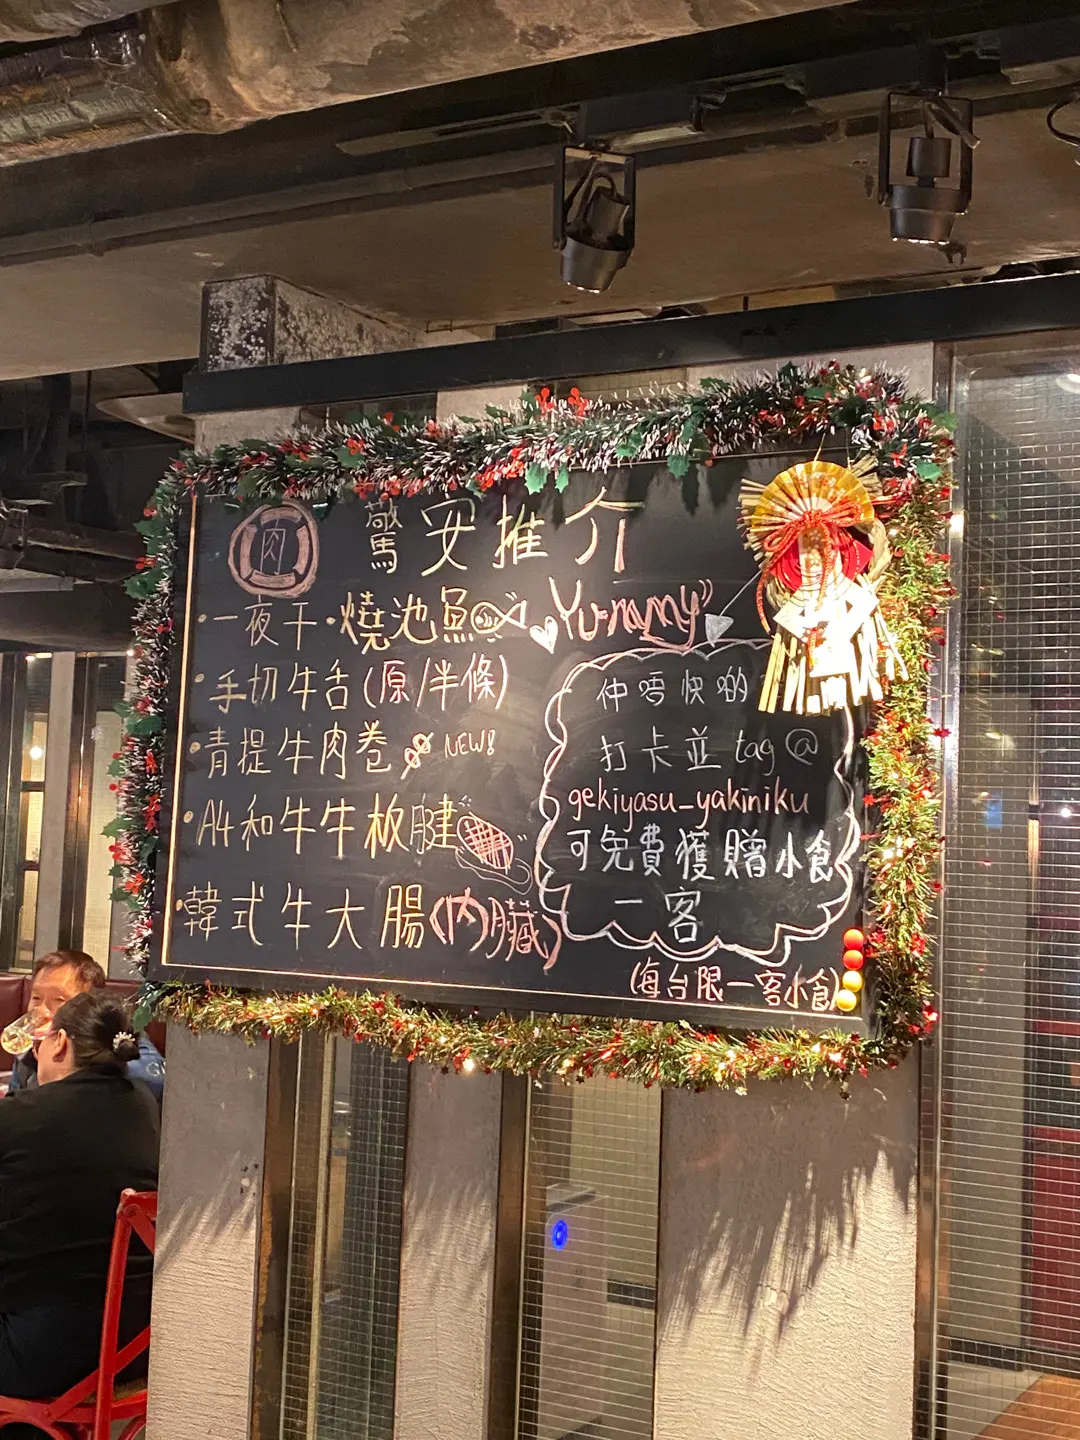 肉
驚安推介
·一夜干·燒池魚
Yummy
·手切牛舌(原/半條)
·青提牛肉卷 NEW!
·A4和牛牛板腱
·韓式牛大腸(內臟)
仲唔快啲
打卡並tag@
gekiyasu_yakiniku
可免費獲贈小食
一客
(每台限一客小食)